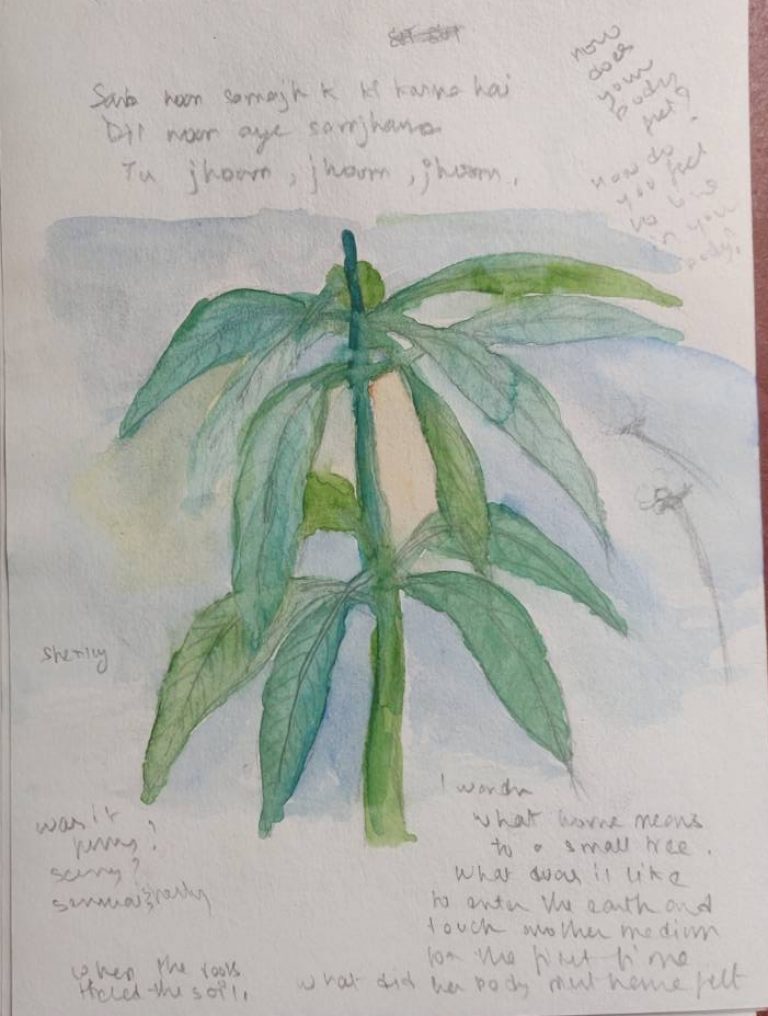 Sab noon samajh k ki karna hai
Dil noon aye samjhana
Tu jhoom, jhoom, jhoom,
how
does
your
body
feel?
How do
you feel
to live
in your
body?
I wonder
what home means
to a small tree.
What was it like
to enter the earth and
touch another medium
for the first time
what did her body must have felt
was it
funny?
scary?
when the roots
held the soil,